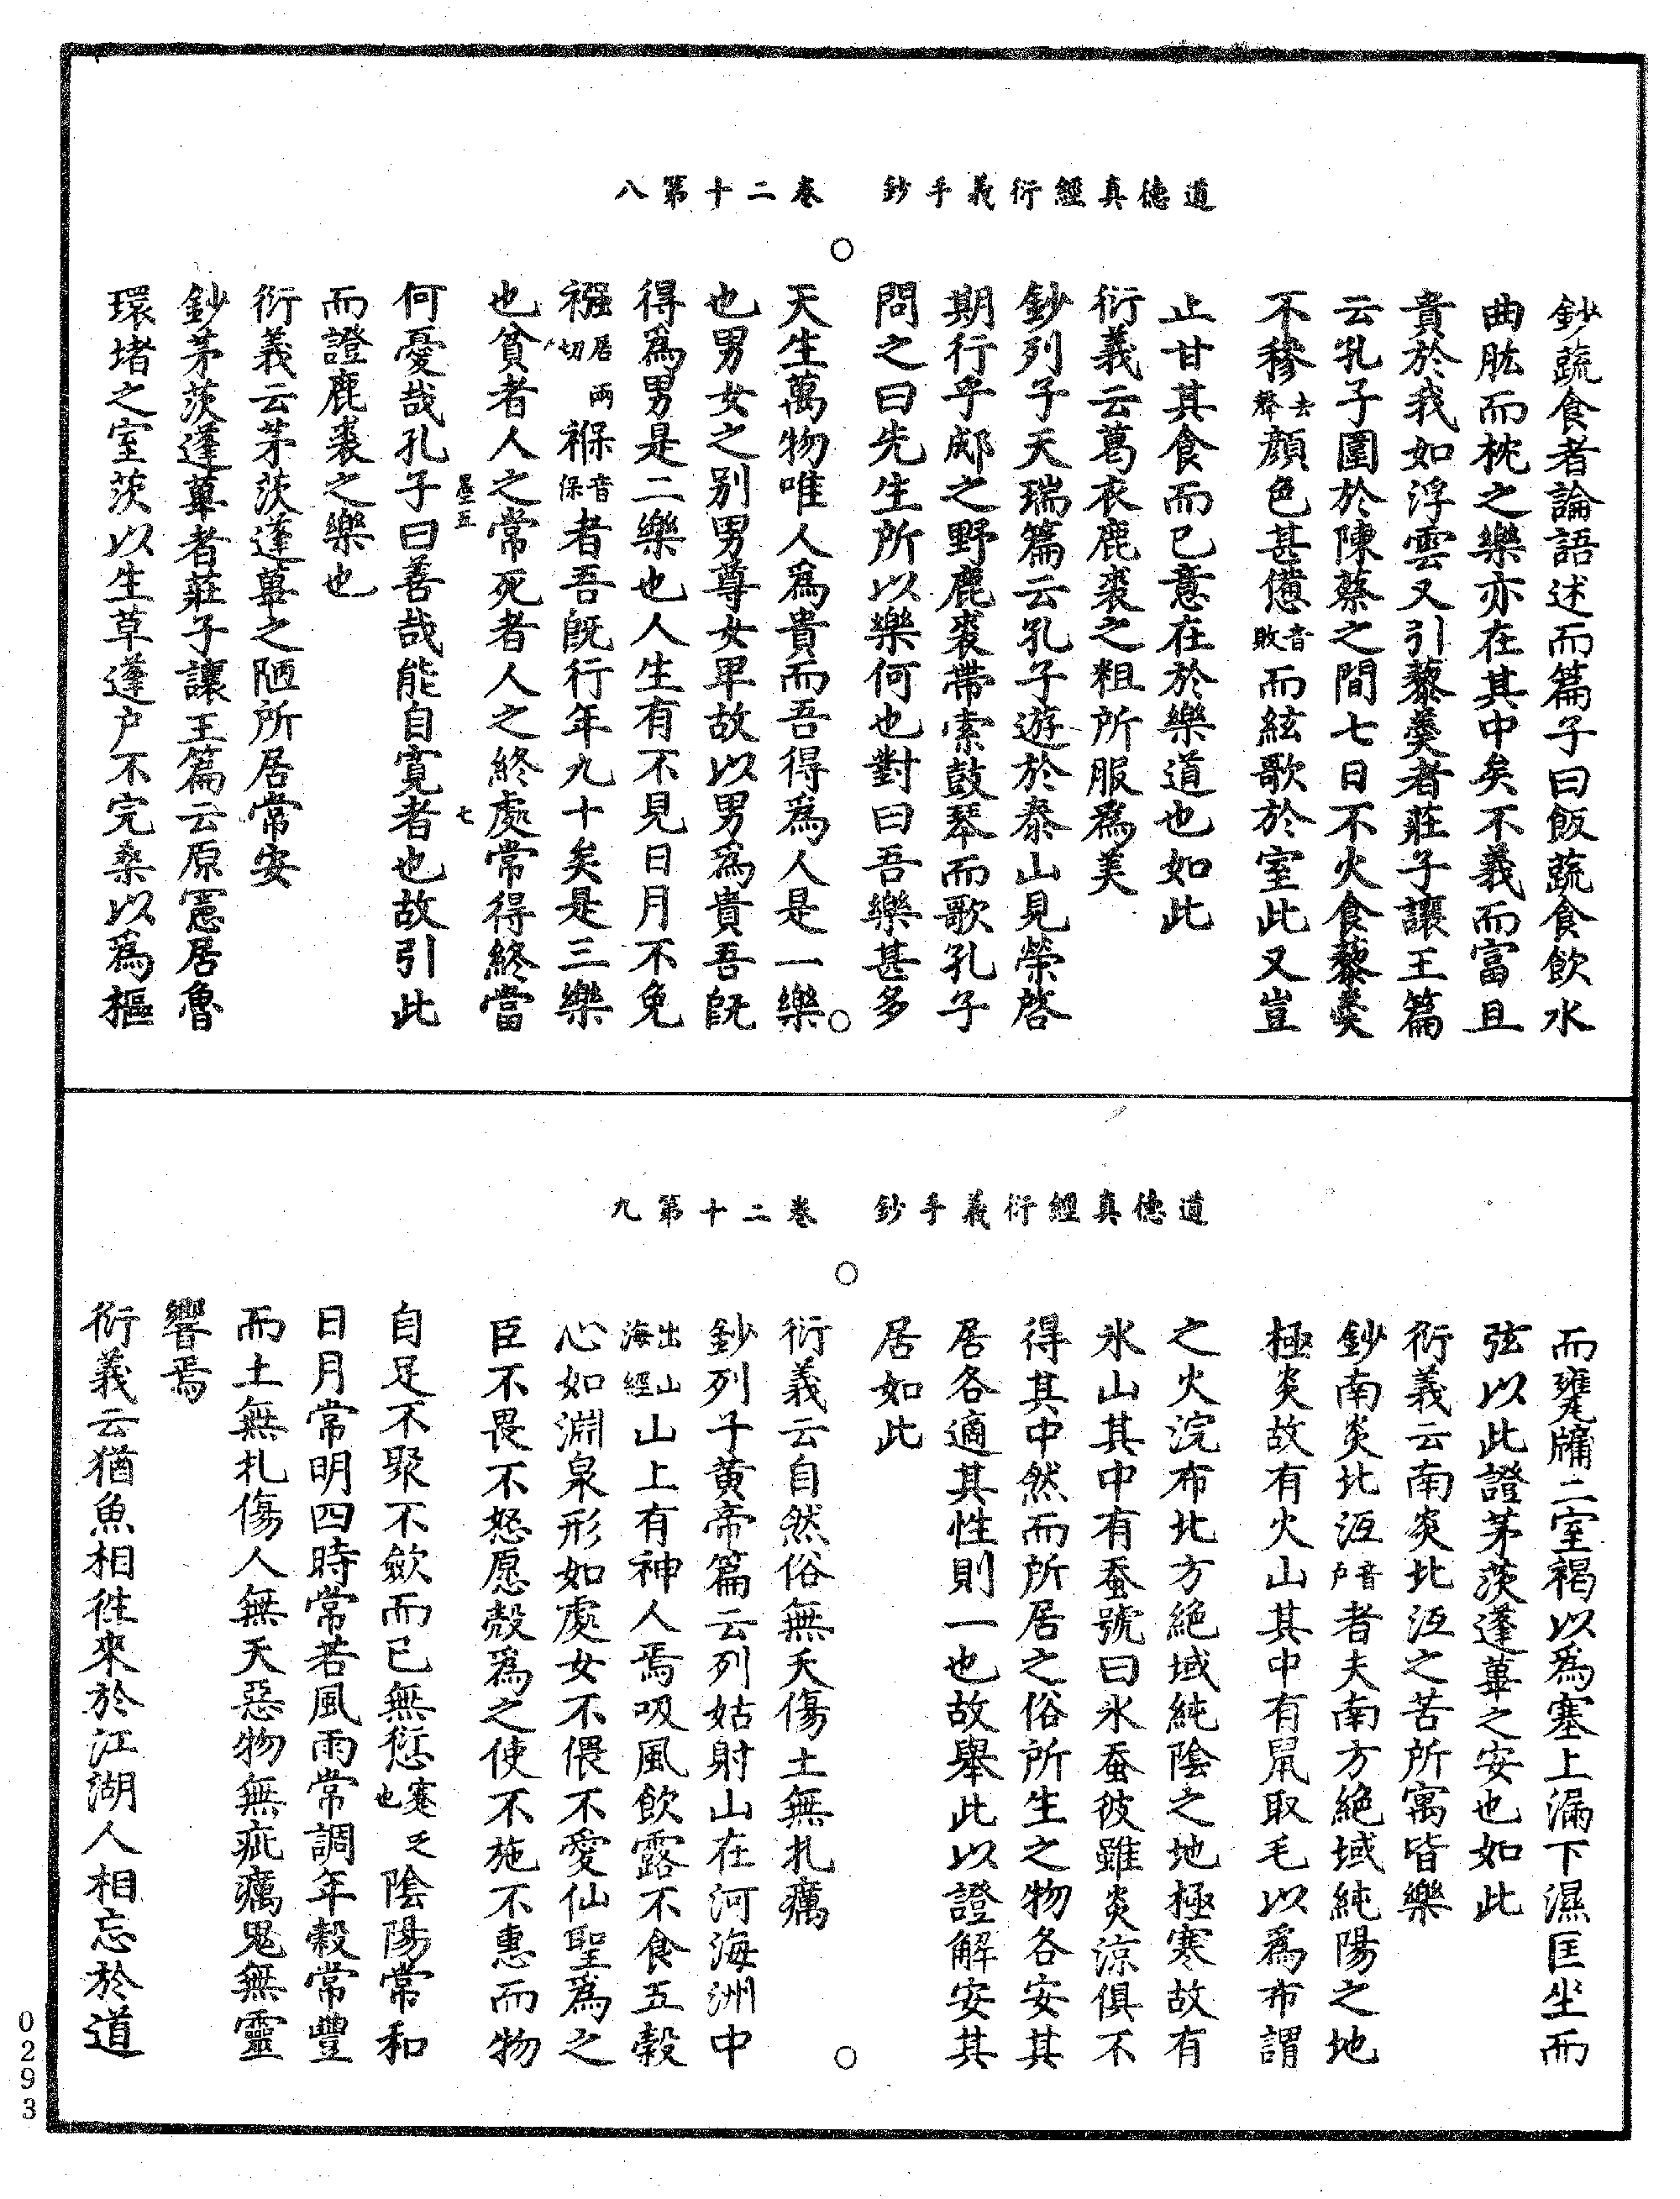 道德真經衍義手鈔　卷二十第八
鈔蔬食者論語述而篇子曰飯蔬食飲水
曲肱而枕之樂亦在其中矣不義而富且
貴於我如浮雲又引藜羹者莊子讓王篇
云孔子圍於陳蔡之間七日不火食藜羹
不穇去聲顔色甚憊音敗而絃歌於室此又豈
止甘其食而已意在於樂道也如此
衍義云葛衣鹿裘之粗所服爲美
鈔列子天瑞篇云孔子遊於泰山見榮啓
期行乎郕之野鹿裘帶索鼓琴而歌孔子
問之曰先生所以樂何也對曰吾樂甚多
天生萬物唯人爲貴而吾得爲人是一樂
也男女之别男尊女卑故以男爲貴吾旣
得爲男是二樂也人生有不見日月不免
襁居兩切褓音保者吾旣行年九十矣是三樂
也貧者人之常死者人之終處常得終當
墨五　七
何憂哉孔子曰善哉能自寛者也故引此
而證鹿裘之樂也
衍義云茅茨蓬蓽之陋所居常安
鈔茅茨蓬蓽者莊子讓王篇云原憲居魯
環堵之室茨以生草蓬户不完桑以爲樞
道德真經衍義手鈔　卷二十第九
而甕牖二室褐以爲塞上漏下濕匡坐而
弦以此證茅茨蓬蓽之安也如此
衍義云南炎北沍之苦所寓皆樂
鈔南炎北沍音户者夫南方絶域純陽之地
極炎故有火山其中有鼠取毛以爲布謂
之火浣布北方絶域純陰之地極寒故有
氷山其中有蚕號曰氷蚕彼雖炎涼俱不
得其中然而所居之俗所生之物各安其
居各適其性則一也故舉此以證解安其
居如此
衍義云自然俗無夭傷土無札癘
鈔列子黄帝篇云列姑射山在河海洲中
出山海經山上有神人焉吸風飲露不食五穀
心如淵泉形如處女不偎不愛仙聖爲之
臣不畏不怒愿慤爲之使不施不惠而物
自足不聚不歛而已無愆蹇乏也陰陽常和
日月常明四時常若風雨常調年穀常豐
而土無札傷人無夭惡物無疵癘鬼無靈
響焉
衍義云猶魚相徃來於江湖人相忘於道
0293